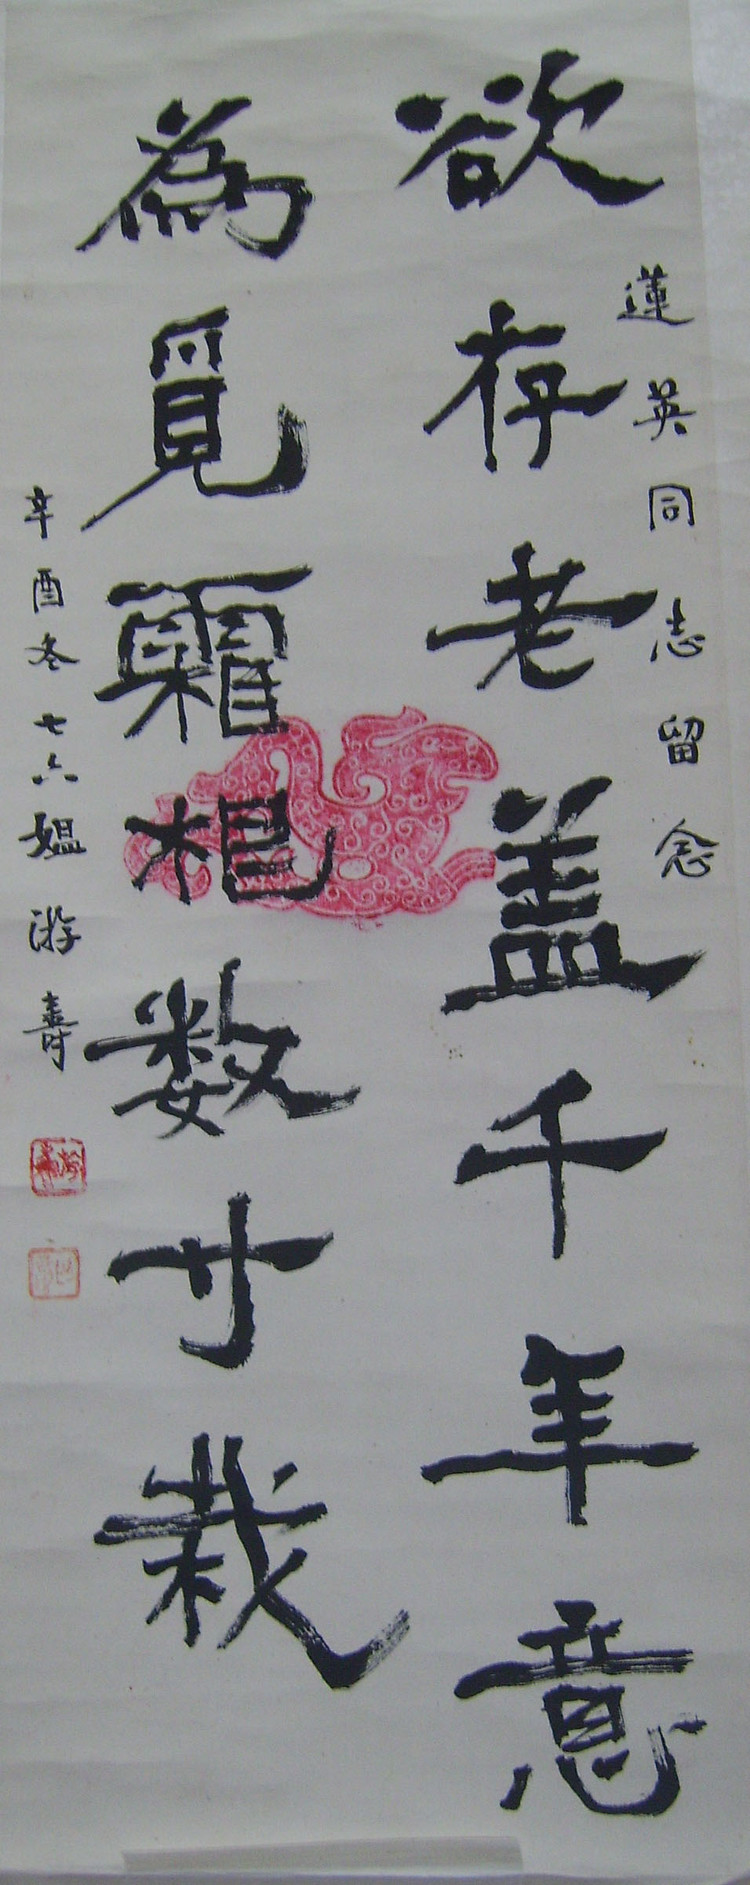 蓮英同志留念
欲存老盖千年意
為覓霜根数寸栽
辛酉冬七六媪游壽